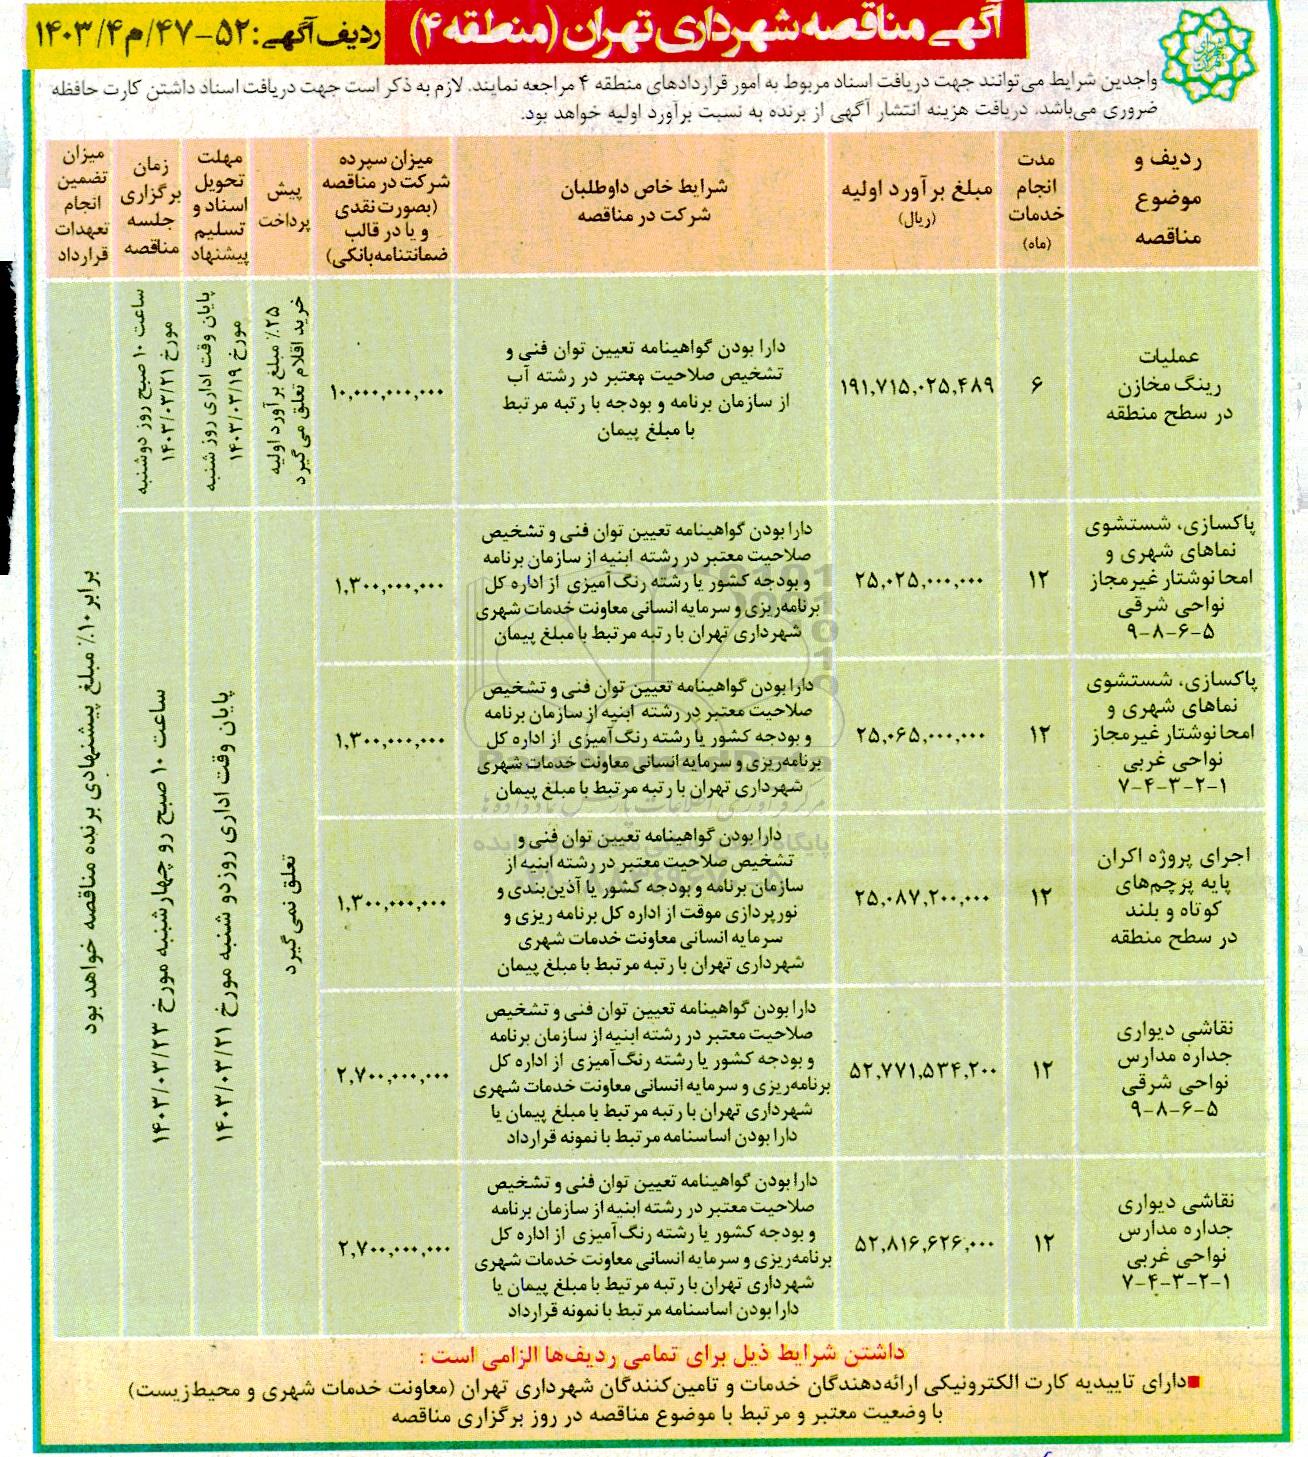 آگهی مناقصه شهرداری تهران (منطقه ۴)
ردیف آگهی: ۵۲-۴۷/م۱۴۰۳/۴
واجدین شرایط می‌توانند جهت دریافت اسناد مربوط به امور قراردادهای منطقه ۴ مراجعه نمایند. لازم به ذکر است جهت دریافت اسناد داشتن کارت حافظه
ضروری می‌باشد. دریافت هزینه انتشار آگهی از برنده به نسبت برآورد اولیه خواهد بود.
ردیف و
موضوع
مناقصه
مدت
انجام
خدمات
(ماه)
مبلغ برآورد اولیه
(ریال)
شرایط خاص داوطلبان
شرکت در مناقصه
میزان سپرده
شرکت در مناقصه
(بصورت نقدی
و یا در قالب
ضمانتنامه‌بانکی)
پیش
پرداخت
مهلت
تحویل
اسناد و
تسلیم
پیشنهاد
زمان
برگزاری
جلسه
مناقصه
میزان
تضمین
انجام
تعهدات
قرارداد
عملیات
رینگ مخازن
در سطح منطقه
۶
۱۹۱,۷۱۵,۰۲۵,۴۸۹
دارا بودن گواهینامه تعیین توان فنی و
تشخیص صلاحیت معتبر در رشته آب
از سازمان برنامه و بودجه با رتبه مرتبط
با مبلغ پیمان
۱۰,۰۰۰,۰۰۰,۰۰۰
۲۵٪ مبلغ برآورد اولیه
خرید اقلام تعلق می‌گیرد
پایان وقت اداری روز شنبه
مورخ ۱۴۰۳/۰۳/۱۹
ساعت ۱۰ صبح روز دوشنبه
مورخ ۱۴۰۳/۰۳/۲۱
برابر ۱۰٪ مبلغ پیشنهادی برنده مناقصه خواهد بود
پاکسازی، شستشوی
نماهای شهری و
امحا نوشتار غیرمجاز
نواحی شرقی
۵-۶-۸-۹
۱۲
۲۵,۰۲۵,۰۰۰,۰۰۰
دارا بودن گواهینامه تعیین توان فنی و تشخیص
صلاحیت معتبر در رشته ابنیه از سازمان برنامه
و بودجه کشور یا رشته رنگ‌آمیزی از اداره کل
برنامه‌ریزی و سرمایه انسانی معاونت خدمات شهری
شهرداری تهران با رتبه مرتبط با مبلغ پیمان
۱,۳۰۰,۰۰۰,۰۰۰
تعلق نمی‌گیرد
پایان وقت اداری روزدو شنبه مورخ ۱۴۰۳/۰۳/۲۱
ساعت ۱۰ صبح رو چهارشنبه مورخ ۱۴۰۳/۰۳/۲۳
پاکسازی، شستشوی
نماهای شهری و
امحا نوشتار غیرمجاز
نواحی غربی
۱-۲-۳-۴-۷
۱۲
۲۵,۰۶۵,۰۰۰,۰۰۰
دارا بودن گواهینامه تعیین توان فنی و تشخیص
صلاحیت معتبر در رشته ابنیه از سازمان برنامه
و بودجه کشور یا رشته رنگ‌آمیزی از اداره کل
برنامه‌ریزی و سرمایه انسانی معاونت خدمات شهری
شهرداری تهران با رتبه مرتبط با مبلغ پیمان
۱,۳۰۰,۰۰۰,۰۰۰
اجرای پروژه اکران
پایه پرچم‌های
کوتاه و بلند
در سطح منطقه
۱۲
۲۵,۰۸۷,۲۰۰,۰۰۰
دارا بودن گواهینامه تعیین توان فنی و
تشخیص صلاحیت معتبر در رشته ابنیه از
سازمان برنامه و بودجه کشور یا آذین‌بندی و
نورپردازی موقت از اداره کل برنامه ریزی و
سرمایه انسانی معاونت خدمات شهری
شهرداری تهران با رتبه مرتبط با مبلغ پیمان
۱,۳۰۰,۰۰۰,۰۰۰
نقاشی دیواری
جداره مدارس
نواحی شرقی
۵-۶-۸-۹
۱۲
۵۲,۷۷۱,۵۳۴,۲۰۰
دارا بودن گواهینامه تعیین توان فنی و تشخیص
صلاحیت معتبر در رشته ابنیه از سازمان برنامه
و بودجه کشور یا رشته رنگ‌آمیزی از اداره کل
برنامه‌ریزی و سرمایه انسانی معاونت خدمات شهری
شهرداری تهران با رتبه مرتبط با مبلغ پیمان یا
دارا بودن اساسنامه مرتبط با نمونه قرارداد
۲,۷۰۰,۰۰۰,۰۰۰
نقاشی دیواری
جداره مدارس
نواحی غربی
۱-۲-۳-۴-۷
۱۲
۵۲,۸۱۶,۶۲۶,۰۰۰
دارا بودن گواهینامه تعیین توان فنی و تشخیص
صلاحیت معتبر در رشته ابنیه از سازمان برنامه
و بودجه کشور یا رشته رنگ‌آمیزی از اداره کل
برنامه‌ریزی و سرمایه انسانی معاونت خدمات شهری
شهرداری تهران با رتبه مرتبط با مبلغ پیمان یا
دارا بودن اساسنامه مرتبط با نمونه قرارداد
۲,۷۰۰,۰۰۰,۰۰۰
داشتن شرایط ذیل برای تمامی ردیف‌ها الزامی است :
■دارای تاییدیه کارت الکترونیکی ارائه‌دهندگان خدمات و تامین‌کنندگان شهرداری تهران (معاونت خدمات شهری و محیط‌زیست)
با وضعیت معتبر و مرتبط با موضوع مناقصه در روز برگزاری مناقصه